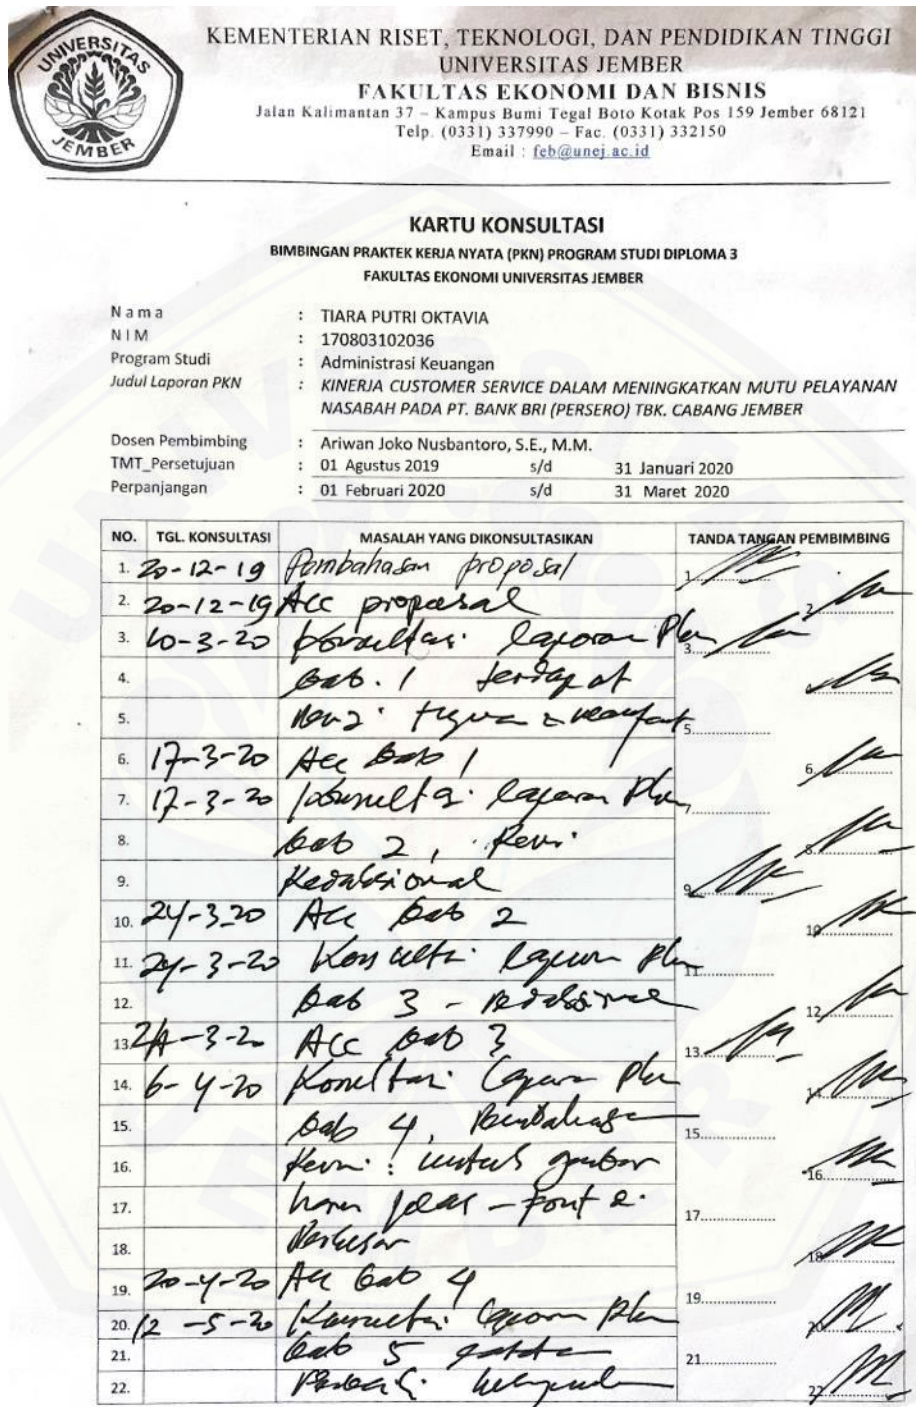 UNIVERSITAS JEMBER
KEMENTERIAN RISET, TEKNOLOGI, DAN PENDIDIKAN TINGGI
UNIVERSITAS JEMBER
FAKULTAS EKONOMI DAN BISNIS
Jalan Kalimantan 37 – Kampus Bumi Tegal Boto Kotak Pos 159 Jember 68121
Telp. (0331) 337990 – Fac. (0331) 332150
Email : feb@unej.ac.id
KARTU KONSULTASI
BIMBINGAN PRAKTEK KERJA NYATA (PKN) PROGRAM STUDI DIPLOMA 3
FAKULTAS EKONOMI UNIVERSITAS JEMBER
Nama : TIARA PUTRI OKTAVIA
NIM : 170803102036
Program Studi : Administrasi Keuangan
Judul Laporan PKN : KINERJA CUSTOMER SERVICE DALAM MENINGKATKAN MUTU PELAYANAN
NASABAH PADA PT. BANK BRI (PERSERO) TBK. CABANG JEMBER
Dosen Pembimbing : Ariwan Joko Nusbantoro, S.E., M.M.
TMT_Persetujuan : 01 Agustus 2019 s/d 31 Januari 2020
Perpanjangan : 01 Februari 2020 s/d 31 Maret 2020
NO. TGL. KONSULTASI MASALAH YANG DIKONSULTASIKAN TANDA TANGAN PEMBIMBING
1. 20-12-19 Pembahasan proposal 1
2. 20-12-19 Acc proposal 2
3. 10-3-20 Konsultasi laporan Pkn 3
4. Bab. 1 terdapat
5. tujuan 5
6. 17-3-20 Acc Bab 1 6
7. 17-3-20 Konsultasi laporan Pkn 7
8. bab 2, Revisi 8
9. Redaksional 9
10. 24-3-20 Acc Bab 2 10
11. 24-3-20 Konsultasi laporan Pkn 11
12. Bab 3 - redaksional 12
13. 24-3-20 Acc Bab 3 13
14. 6-4-20 Konsultasi laporan Pkn 14
15. Bab 4, Pembahasan 15
16. Revisi : untuk gambar 16
17. harus jelas - font di 17
18. Perbesar 18
19. 20-4-20 Acc Bab 4 19
20. 12-5-20 Konsultasi laporan Pkn 20
21. Bab 5 21
22. 22